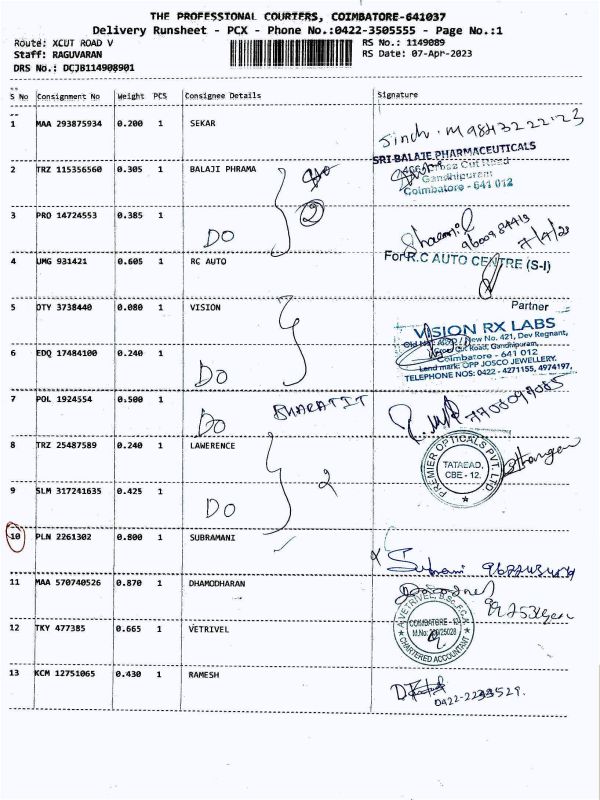 THE PROFESSIONAL COURIERS, COIMBATORE-641037
Delivery Runsheet - PCX - Phone No.:0422-3505555 - Page No.:1
Route: XCUT ROAD V RS No.: 1149089
Staff: RAGUVARAN RS Date: 07-Apr-2023
DRS No.: DCJB114908901
S No Consignment No Weight PCS Consignee Details Signature
1 MAA 293875934 0.200 1 SEKAR
SRI BALAJE PHARMACEUTICALS
2 TRZ 115356560 0.305 1 BALAJI PHRAMA
Cross Cut Road
Gandhipuram
Coimbatore - 641 012
3 PRO 14724553 0.385 1
DO 2
7/4/23
4 UMG 931421 0.605 1 RC AUTO
For R.C AUTO CENTRE (S-I)
Partner
5 DTY 3738440 0.080 1 VISION
VISION RX LABS
New No. 421, Dev Regnant,
Cross Cut Road, Gandhipuram,
6 EDQ 17484100 0.240 1
DO
Coimbatore - 641 012
Land mark: OPP JOSCO JEWELLERY.
TELEPHONE NOS: 0422 - 4271155, 4974197,
7 POL 1924554 0.500 1
DO BHARATIT
8 TRZ 25487589 0.240 1 LAWERENCE
PREMIER OPTICALS PVT. LTD.
TATABAD,
CBE - 12.
9 SLM 317241635 0.425 1
DO 2
10 PLN 2261302 0.800 1 SUBRAMANI
11 MAA 570740526 0.870 1 DHAMODHARAN
12 TKY 477385 0.665 1 VETRIVEL
A.VETRIVEL, B.Sc., F.C.A.
COIMBATORE - 12
CHARTERED ACCOUNTANT
13 KCM 12751065 0.430 1 RAMESH